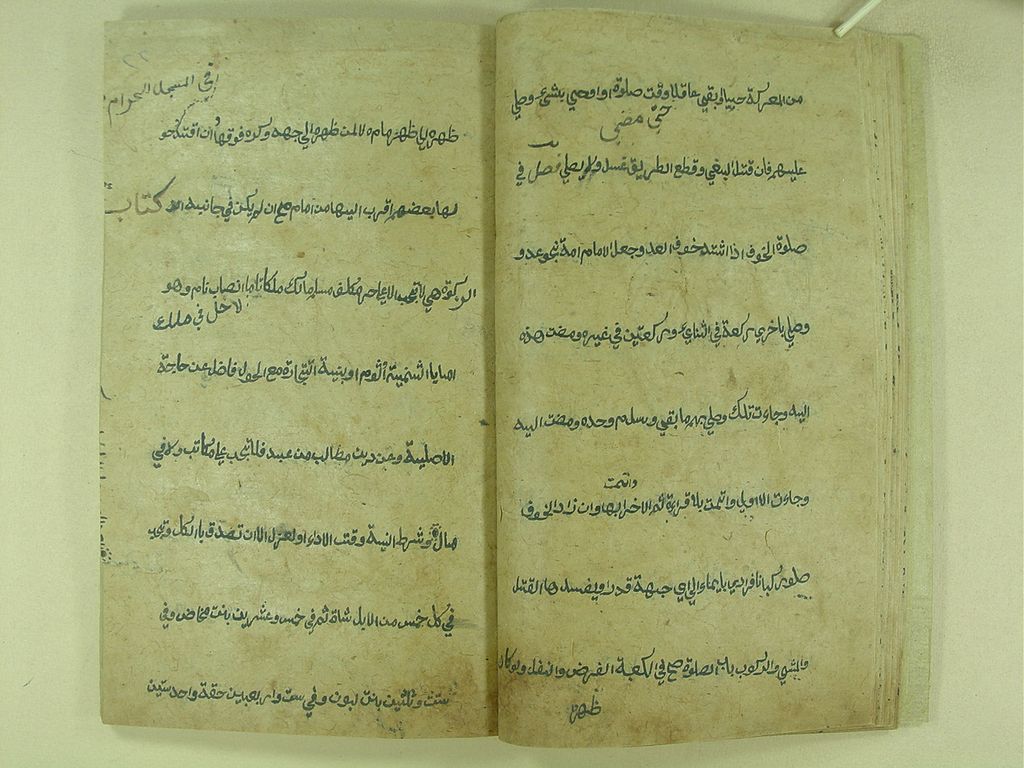 من المعركة حيا او بقي عاقلا وقت صلوة او اوصي بشيء وصلي
حتي مضي
عليهم فان قتل البغي وقطع الطريق غسل ولا يصلي فصل في
صلوة الخوف اذا اشتد خوف العدو جعل الامام امة نحو عدو
وصلي باخري ركعة في الثنائي وركعتين في غيره ومضت هذه
اليه وجاءت تلك وصلي بهم ما بقي وسلم وحده ومضت اليه
واتمت
وجاءت الاولي واتمت بلا قراءة ثم الاخري بها وان زاد الخوف
صلو ركبانا فرادي بايماء الي اي جهة قدر ويفسدها القتل
والمشي والركوب باب الصلوة صح في الكعبة الفرض والنفل ولو كان
ظهره
في المسجد الحرام
ظهره الي ظهر امامه لا لمن ظهره الي جهه وكره فوقها وان اقتدو
لها بعضهم اقرب اليها من امام صح ان لم يكن في جانبه كتاب
الزكوة هي لا تجب الا علي حر مكلف مسلم مالك ملكا تاما نصاب تام وهو
في ملك
اما بالثمنية او السوم او بنية التجارة مع الحول فاضل عن حاجة
الاصلية وعن دين مطالب من عبد فلا تجب علي مكاتب ولا في
مال وشرط النية وقت الاداء او العزل الا ان تصدق بالكل وتجب
في كل خمس من الابل شاة ثم في خمس وعشرين بنت مخاض وفي
ست وثلثين بنت لبون وفي ست واربعين حقة واحد ستين